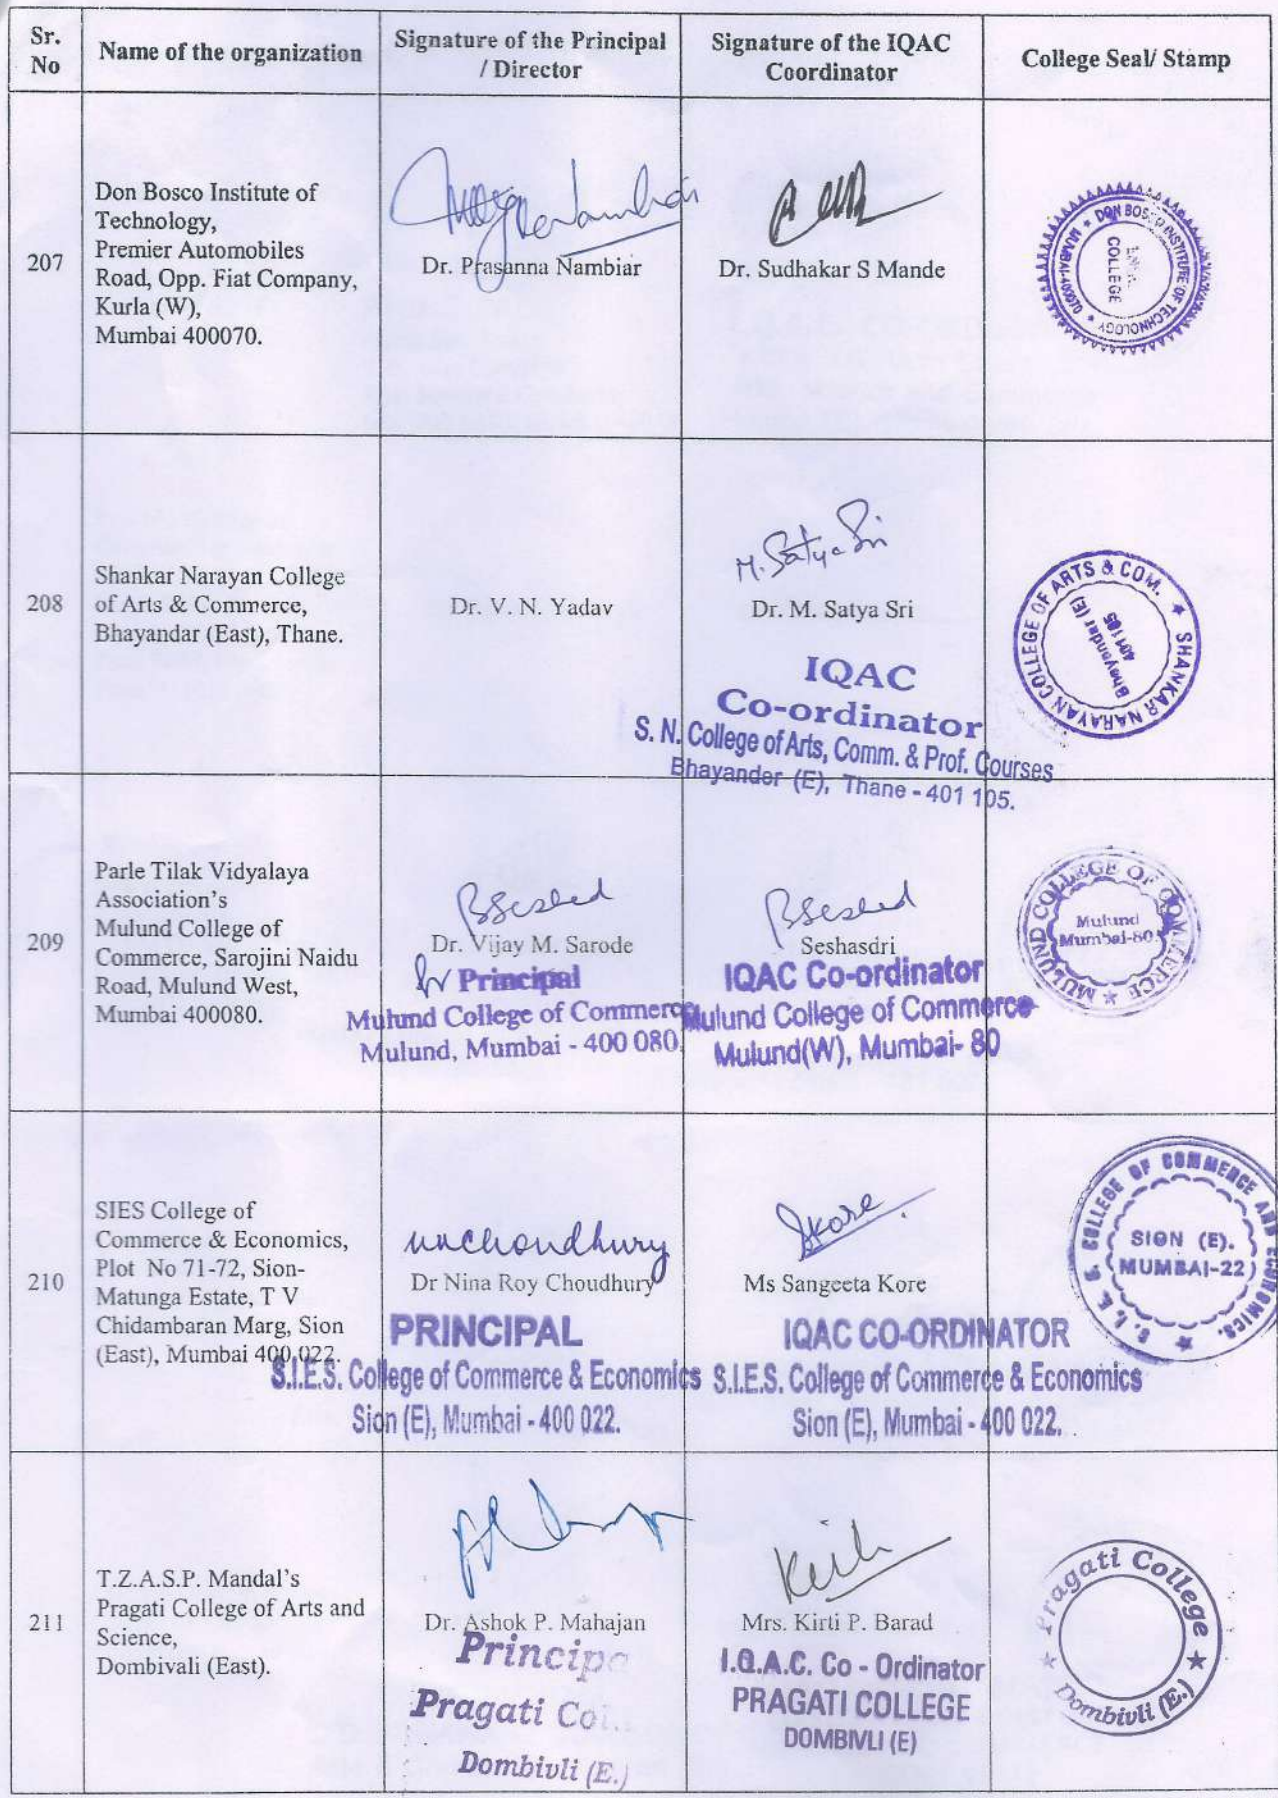 Sr.
No
Name of the organization
Signature of the Principal
/ Director
Signature of the IQAC
Coordinator
College Seal/ Stamp
207
Don Bosco Institute of
Technology,
Premier Automobiles
Road, Opp. Fiat Company,
Kurla (W),
Mumbai 400070.
Dr. Prasanna Nambiar
Dr. Sudhakar S Mande
DON BOSCO INSTITUTE OF TECHNOLOGY * MUMBAI-400070 *
COLLEGE
208
Shankar Narayan College
of Arts & Commerce,
Bhayandar (East), Thane.
Dr. V. N. Yadav
M. Satya Sri
Dr. M. Satya Sri
IQAC
Co-ordinator
S. N. College of Arts, Comm. & Prof. Courses
Bhayander (E), Thane - 401 105.
SHANKAR NARAYAN COLLEGE OF ARTS & COM. ★
Bhayander (E)
401 105
209
Parle Tilak Vidyalaya
Association's
Mulund College of
Commerce, Sarojini Naidu
Road, Mulund West,
Mumbai 400080.
Dr. Vijay M. Sarode
for Principal
Mulund College of Commerce
Mulund, Mumbai - 400 080.
Seshasdri
IQAC Co-ordinator
Mulund College of Commerce
Mulund(W), Mumbai- 80
MULUND COLLEGE OF COMMERCE ★
Mulund
Mumbai-80.
210
SIES College of
Commerce & Economics,
Plot No 71-72, Sion-
Matunga Estate, T V
Chidambaran Marg, Sion
(East), Mumbai 400 022.
nrchoudhury
Dr Nina Roy Choudhury
PRINCIPAL
S.I.E.S. College of Commerce & Economics
Sion (E), Mumbai - 400 022.
Skore
Ms Sangeeta Kore
IQAC CO-ORDINATOR
S.I.E.S. College of Commerce & Economics
Sion (E), Mumbai - 400 022.
S. I. E. S. COLLEGE OF COMMERCE AND ECONOMICS. ★
SION (E).
MUMBAI-22
211
T.Z.A.S.P. Mandal's
Pragati College of Arts and
Science,
Dombivali (East).
Dr. Ashok P. Mahajan
Principa
Pragati Col
Dombivli (E.)
Kirti
Mrs. Kirti P. Barad
I.Q.A.C. Co - Ordinator
PRAGATI COLLEGE
DOMBIVLI (E)
★ Pragati College ★
Dombivli (E.)